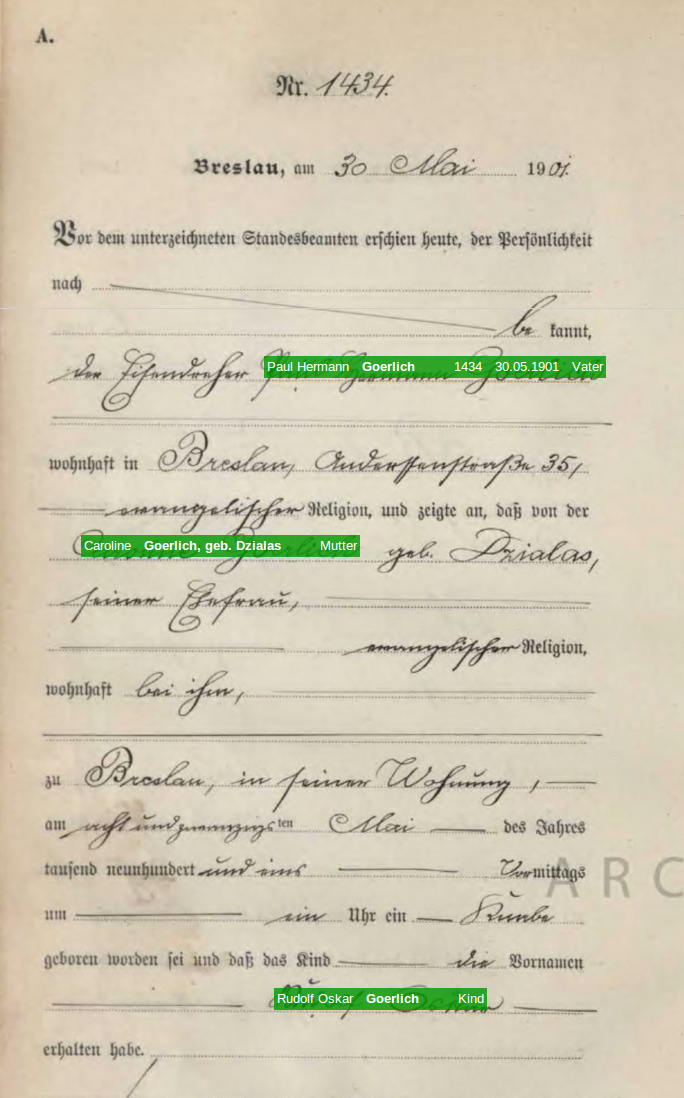 A.
Nr. 1434.
Breslau, am 30 Mai 1901.
Vor dem unterzeichneten Standesbeamten erschien heute, der Persönlichkeit
nach
be kannt,
der Eisendreher Paul Hermann Goerlich 1434 30.05.1901 Vater
wohnhaft in Breslau, Anderssenstraße 35,
evangelischer Religion, und zeigte an, daß von der
Caroline Goerlich, geb. Dzialas Mutter geb. Dzialas,
seiner Ehefrau,
evangelischer Religion,
wohnhaft bei ihm,
zu Breslau, in seiner Wohnung,
am acht und zwanzigsten Mai des Jahres
tausend neunhundert und eins Vormittags
um ein Uhr ein Knabe
geboren worden sei und daß das Kind die Vornamen
Rudolf Oskar Goerlich Kind
erhalten habe.
ARC